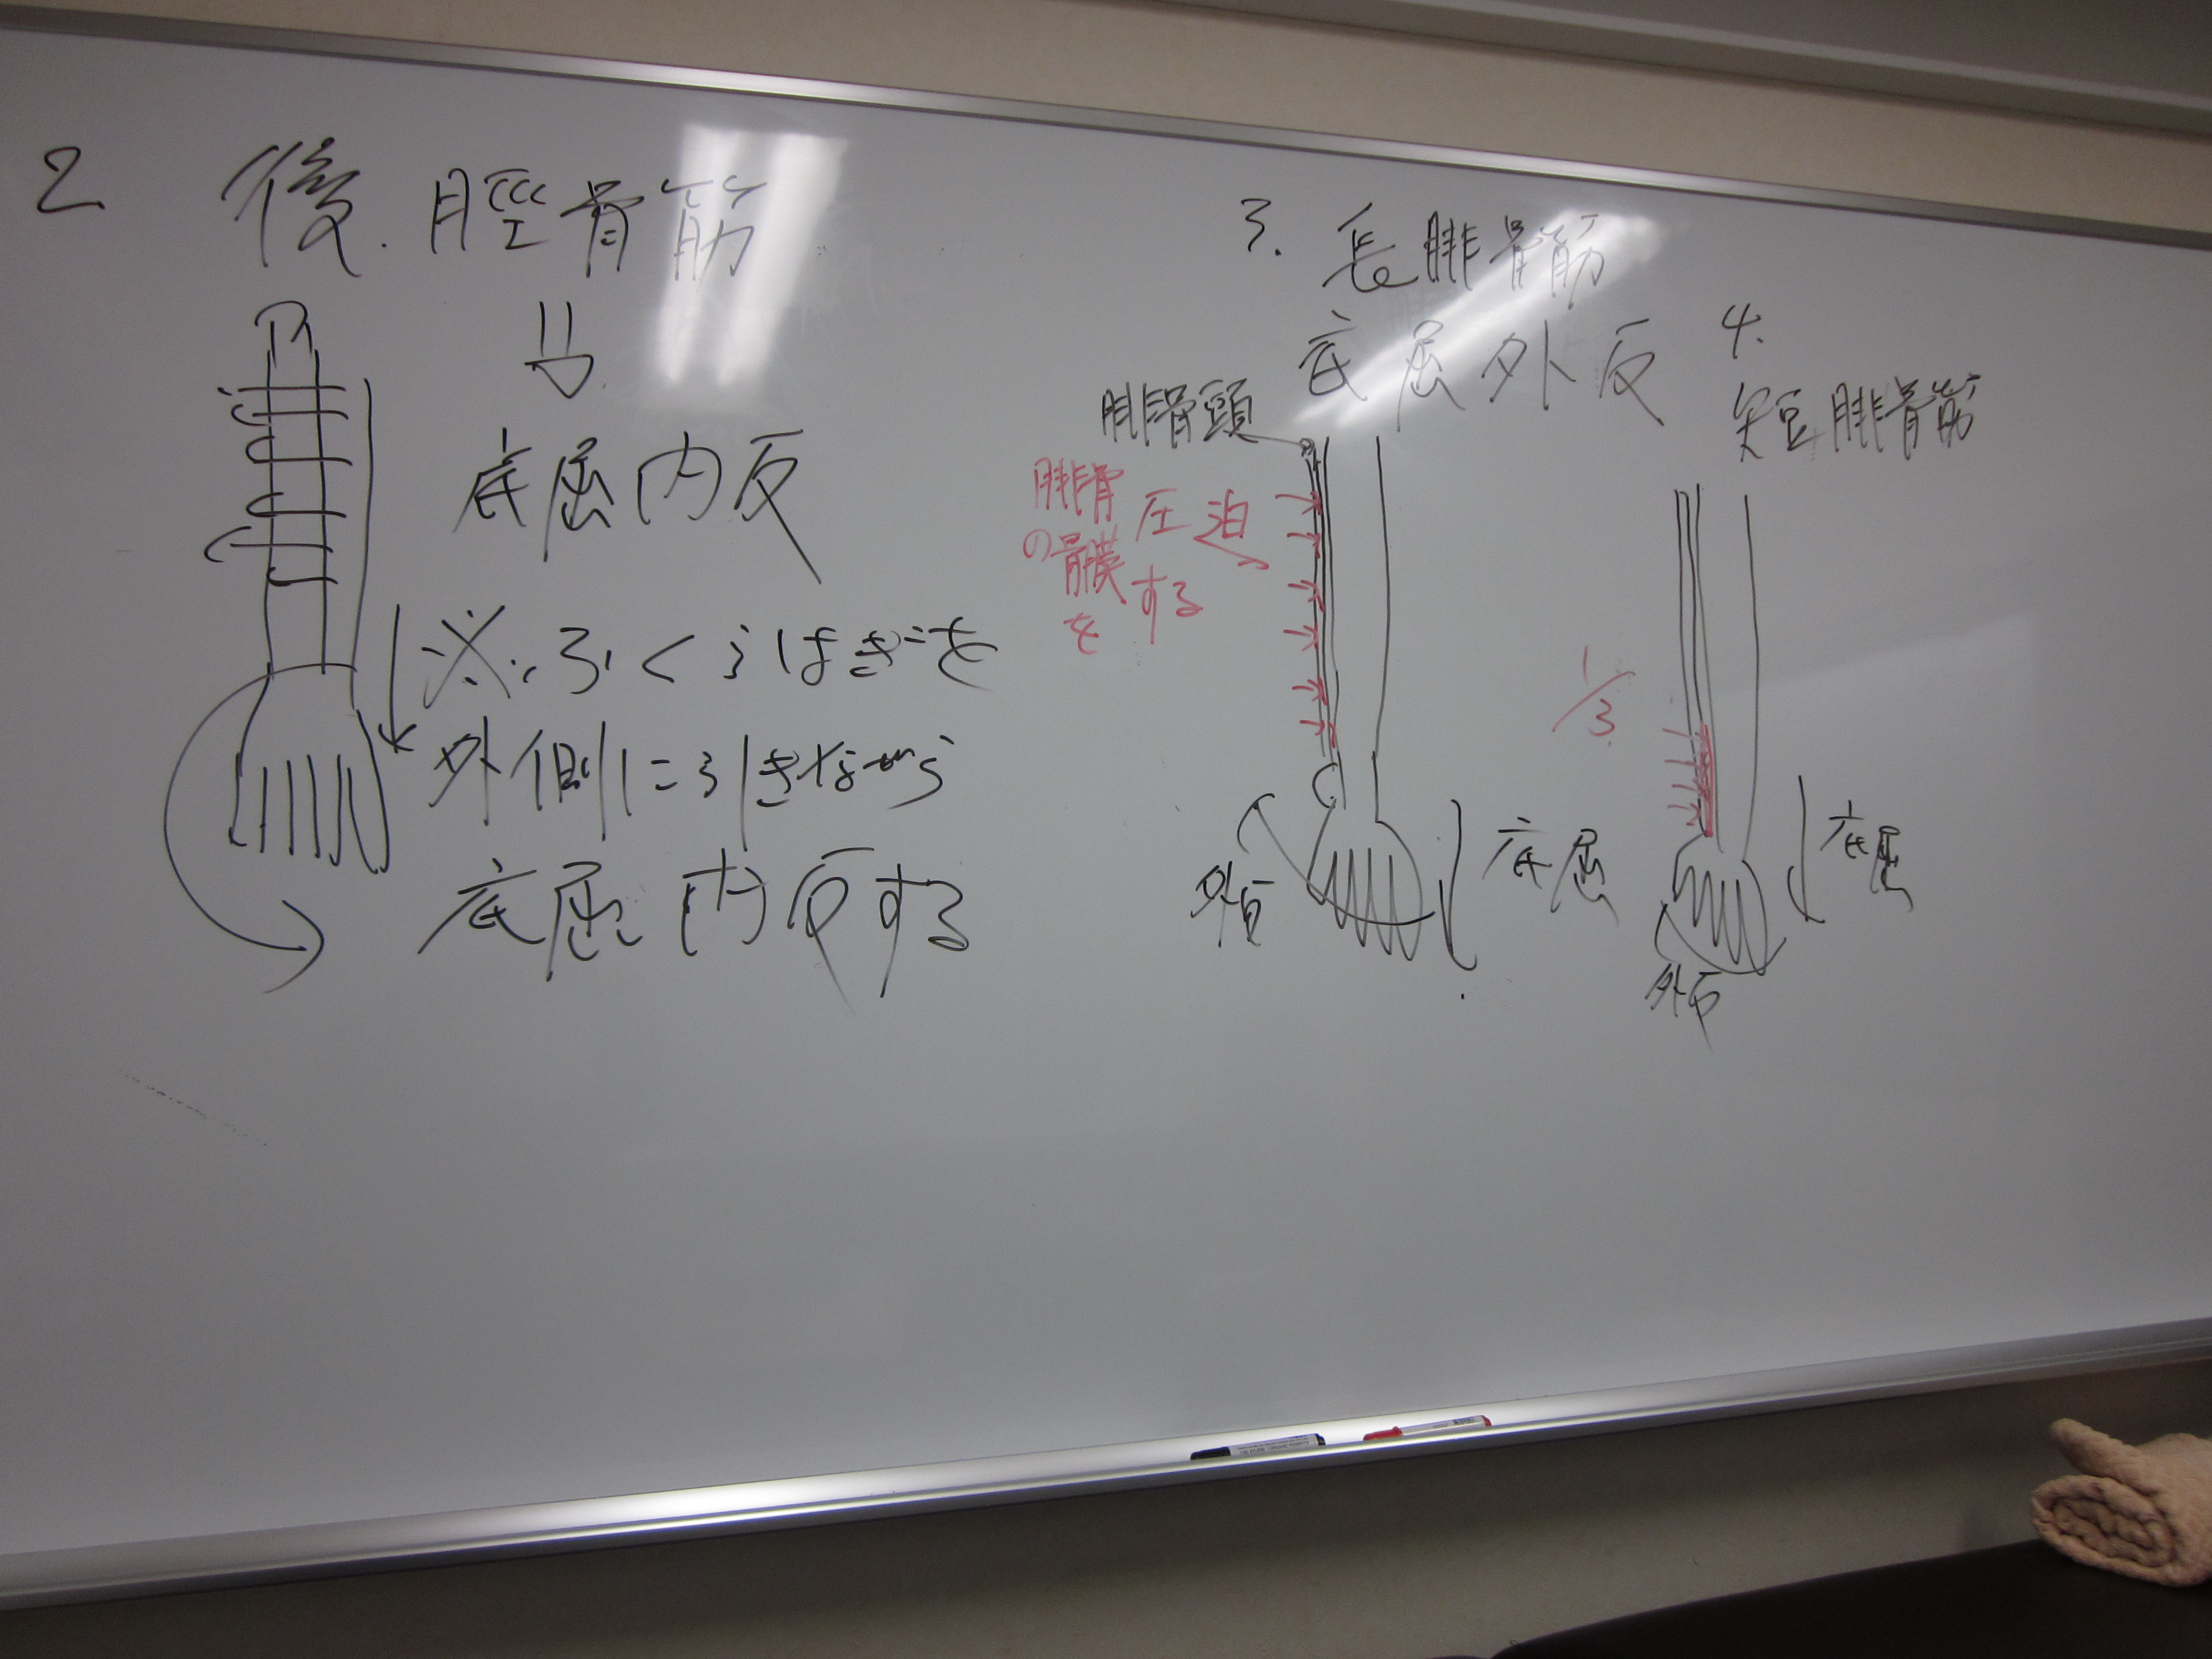 2 後脛骨筋
底屈内反
※ふくらはぎを
外側に引きながら
底屈内反する
3. 長腓骨筋
底屈外反
腓骨頭
腓骨
の骨膜
を
圧迫
する
外反
底屈
4.
短腓骨筋
1/3
底屈
外反